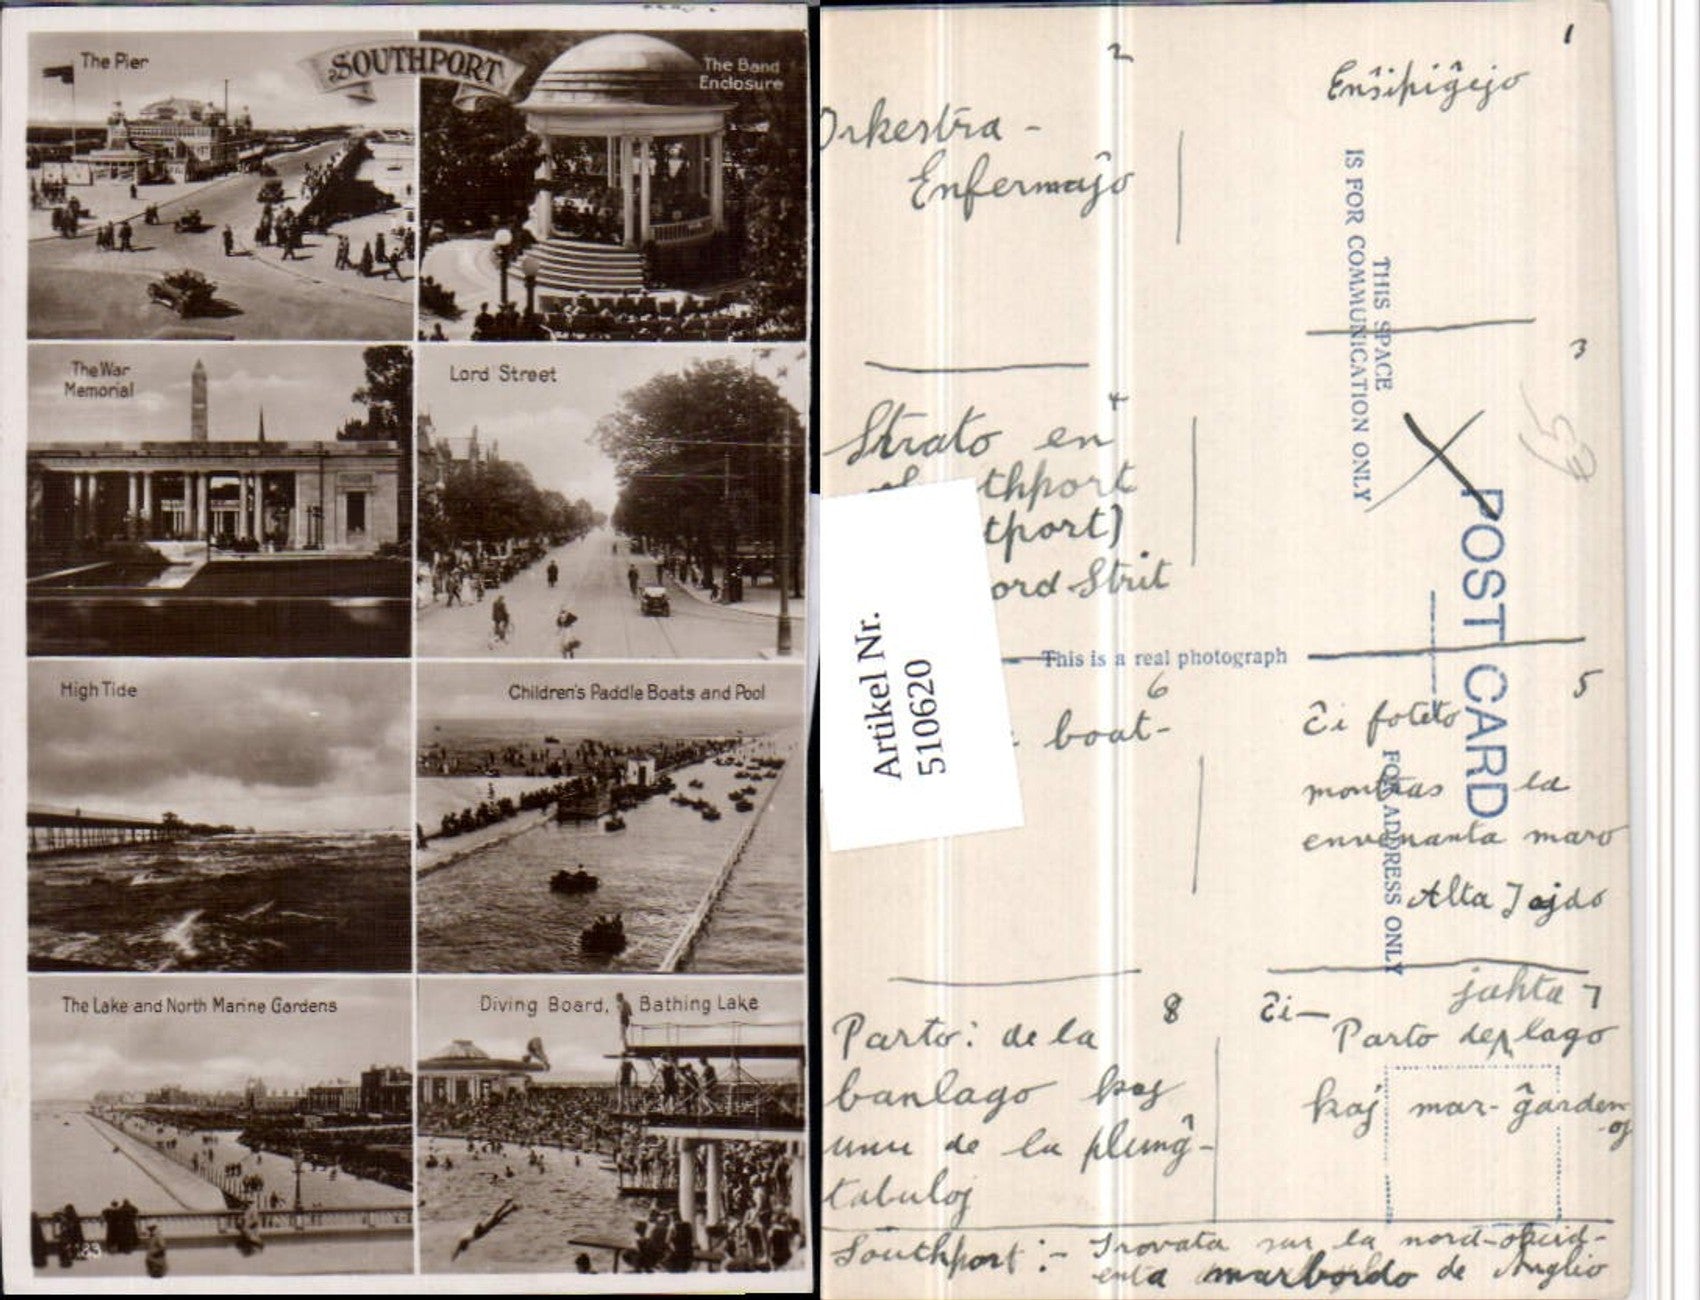 SOUTHPORT
The Pier
The Band
Enclosure
The War
Memorial
Lord Street
High Tide
Children's Paddle Boats and Pool
The Lake and North Marine Gardens
Diving Board, Bathing Lake
83
1
Enŝipiĝejo
2
Orkestra-
Enfermaĵo
3
65
4
Strato en
thport
tport)
ord Strit
Artikel Nr.
510620
THIS SPACE
IS FOR COMMUNICATION ONLY
POST CARD
FOR ADDRESS ONLY
This is a real photograph
5
Ĉi foteto
montras la
envenanta maro
Alta Tajdo
6
boat-
7
jahta
Ĉi- Parto de lago
kaj mar-ĝarden-
oj
8
Parto: de la
banlago kaj
unu de la plunĝ-
tabuloj
Southport:- Trovata sur la nord-okcid-
enta marbordo de Anglio